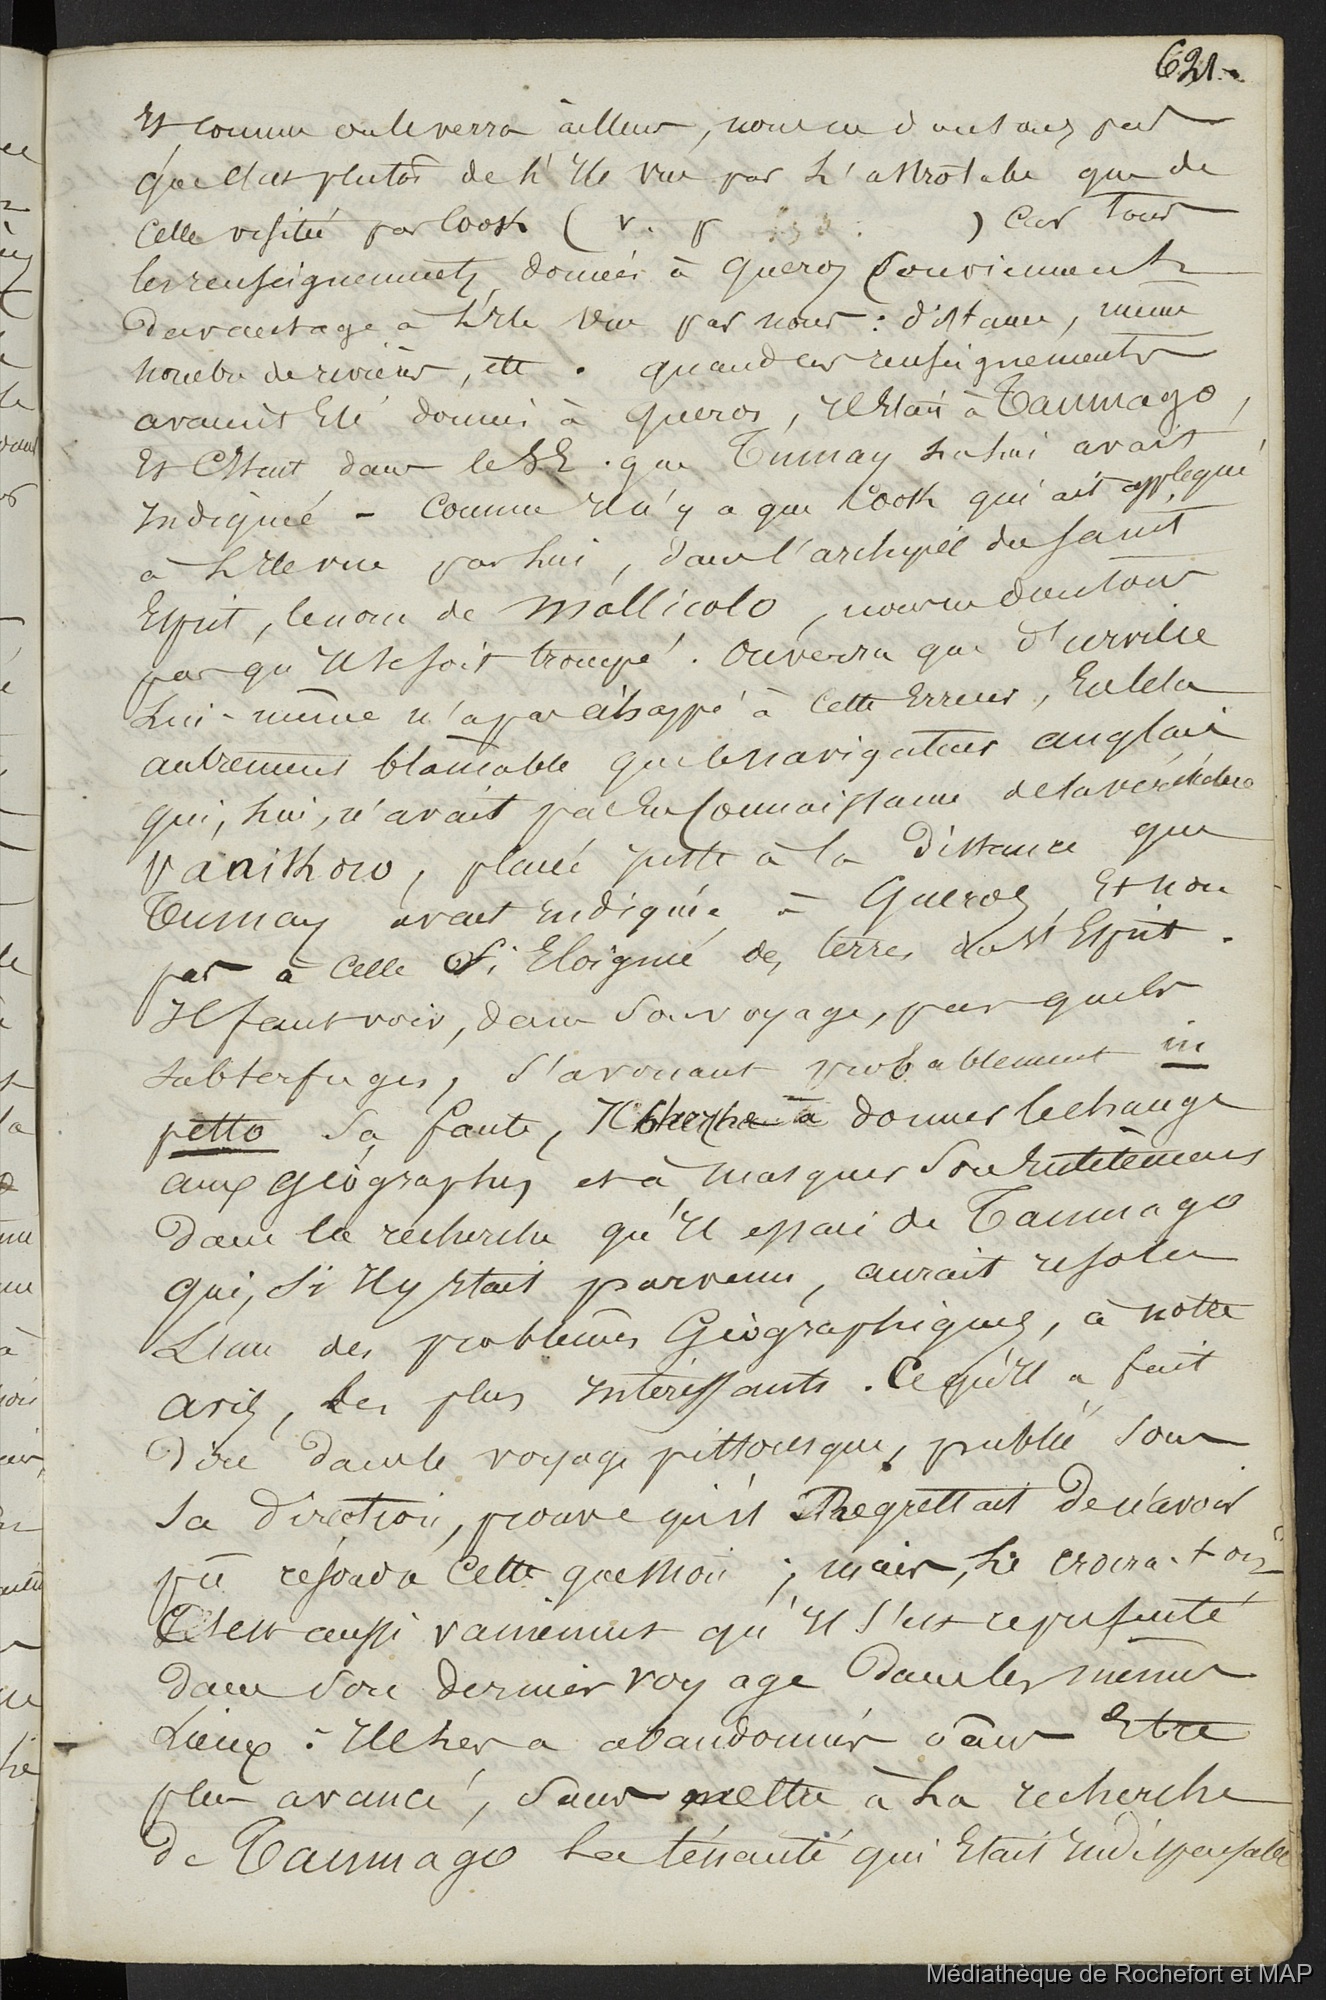 621.
Et comme on le verra ailleurs, nous ne doutons pas
que c'est plutôt de l'Ile vue par L'astrolabe que de
celle visitée par Cook ( v. p ) Car tous
les renseignements donnés à Queros conviennent
davantage à L'Ile vue par nous : distance, même
nombre de rivières, ett. quand ces renseignements
avaient Eté donnés à Queros, Il Etait à Taumago,
Et C'Etait dans le SE. que Tumay la lui avait
Indiquée - Comme Il n'y a que Cook qui ait appliqué
à L'Ile vue par lui, dans l'archipel du Saint
Esprit, le nom de Mallicolo, nous ne doutons
pas qu'Il se soit trompé. On verra que d'urville
Lui-même n'a pas échappé à cette Erreur, En cela
autrement blamable que le navigateur anglais
qui, lui, n'avait pas Eu connaissance de la véritable
Vanikoro, placée juste à la distance que
Tumay avait Indiquée à Queros Et non
pas à celle si Eloignée des terres du St Esprit.
Il faut voir, dans son voyage, par quels
subterfuges, s'avouant probablement in
petto sa faute, Il cherche à donner le change
aux géographes et à masquer son Entêtement
dans la recherche qu'Il essaie de Taumago
qui, si Il y Etait parvenu, aurait résolu
L'un des problêmes Géographiques, à notre
avis, les plus Intéressants. Ce qu'Il a fait
dire dans le voyage pittoresque, publié sous
sa direction, prouve qu'Il Regrettait de n'avoir
pu résoudre cette question ; mais, le croira-t-on,
C'est aussi vainement qu'Il s'est représenté
dans son dernier voyage dans les mêmes
Lieux : Il les a abandonnés sans Etre
plus avancé, sans mettre à La recherche
de Taumago La ténacité qui Etait Indispensable
Médiathèque de Rochefort et MAP